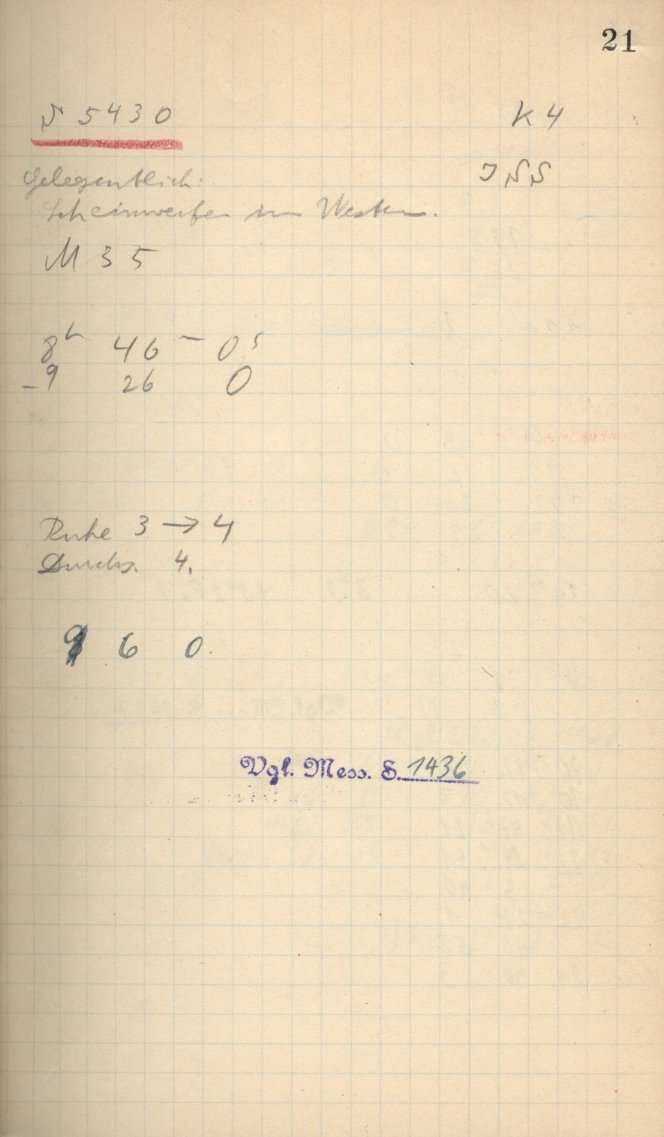 21
S 5430
K 4
ISS
Gelegentlich:
Scheinwerfer im Westen.
M 35
8h 46m 0s
-9 26 0
Ruhe 3 → 4
Durchs. 4.
9 6 0.
Vgl. Mess. S. 1436